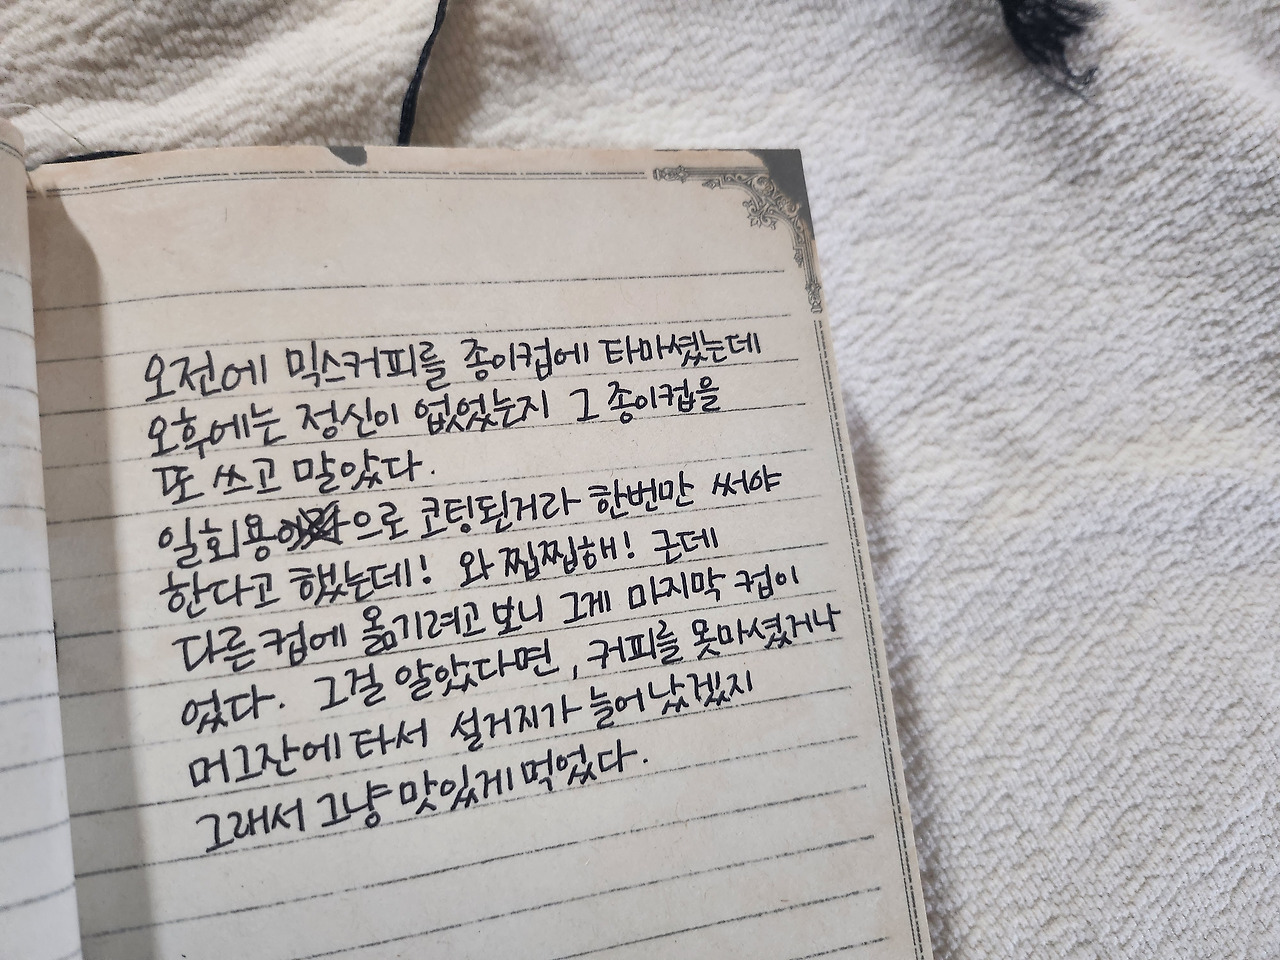 오전에 믹스커피를 종이컵에 타마셨는데
오후에는 정신이 없었는지 그 종이컵을
또 쓰고 말았다.
일회용으로 코팅된거라 한번만 써야
한다고 했는데! 와 찝찝해! 근데
다른 컵에 옮기려고 보니 그게 마지막 컵이
었다. 그걸 알았다면, 커피를 못마셨거나
머그잔에 타서 설거지가 늘어났겠지
그래서 그냥 맛있게 먹었다.